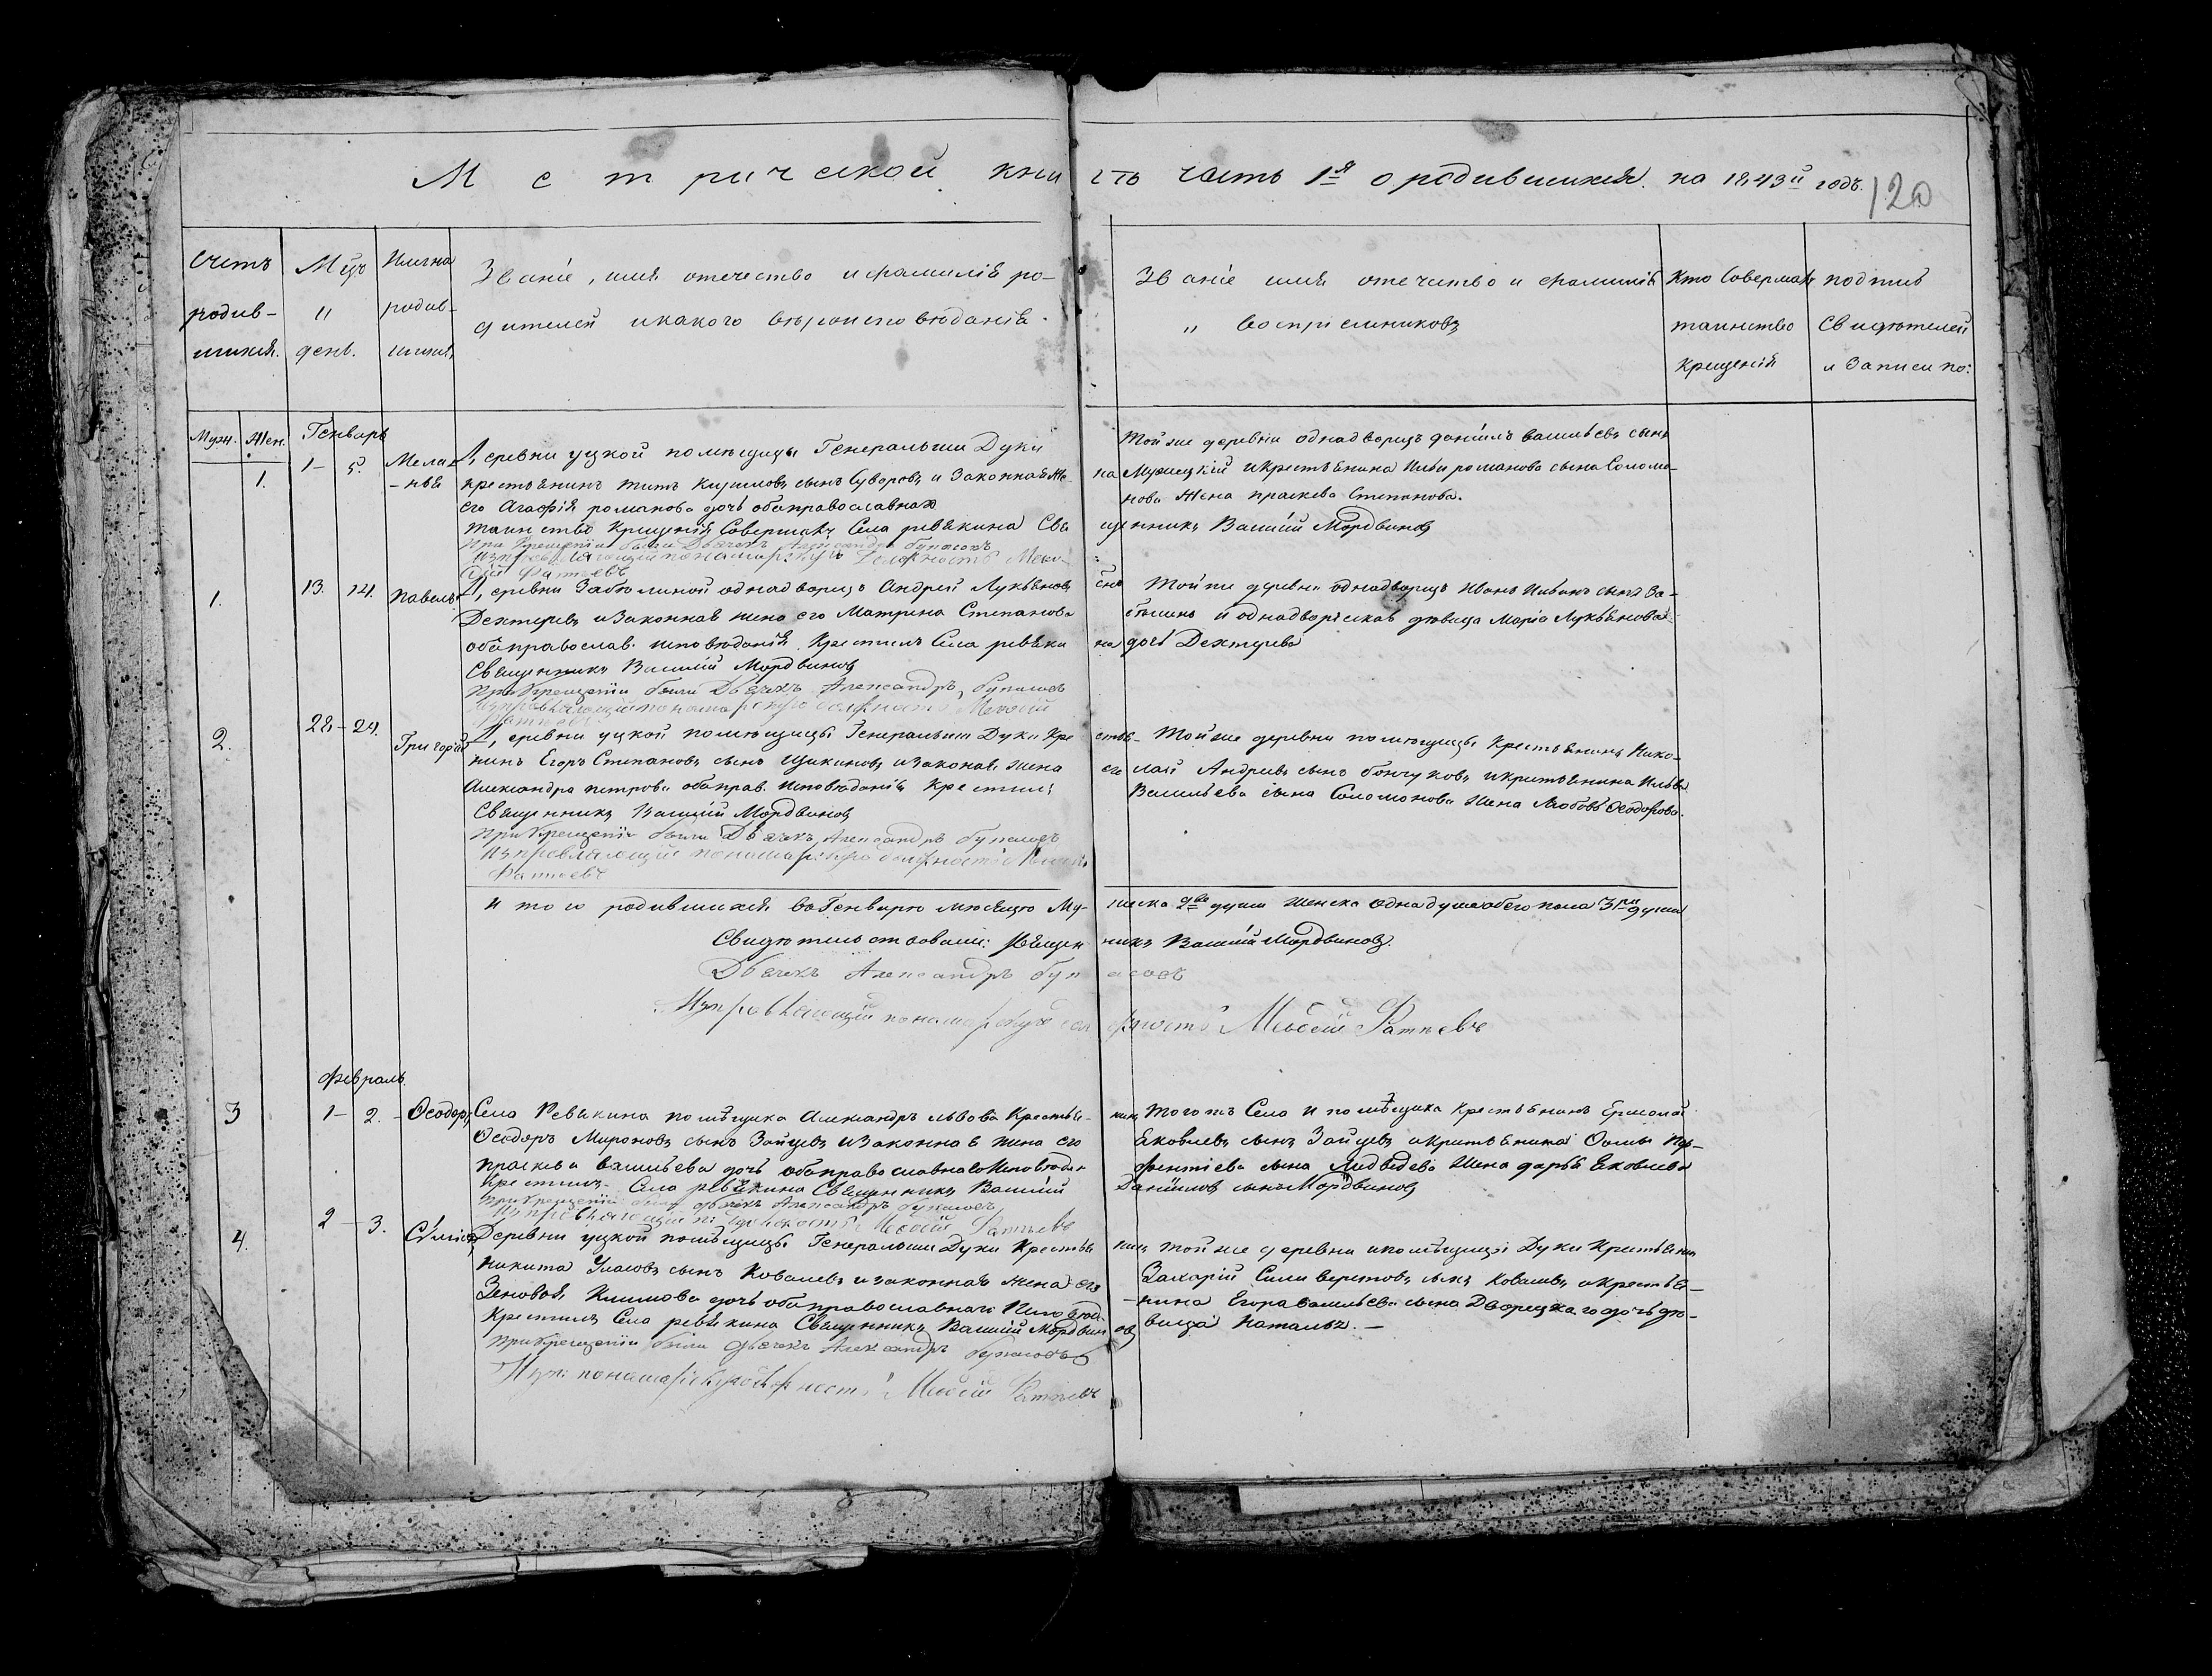 Метрической книгѣ часть 1я о родившихся на 1843й годъ.
120
Счетъ родив- шихся.
Мцъ и день.
Имена родив- шихся
Званіе, имя отечество и фамилія ро-
дителей и какого вѣроисповѣданія.
Званіе имя отечество и фамилія
и воспріемниковъ
Кто совершалъ таинство крещенія
подпись свидѣтелей и записи по:
Муж. Жен. Генварь
1. 1 – 5. Мелан-
-нья
Деревни уцкой помѣщицы Генеральши Дуки
крестьянинъ Титъ Кириловъ сынъ Суворовъ и законная же-
на его Агафія романова дочь оба православная
таинство крещенія совершалъ Села ревякина Свя
щенникъ Василій Мордвиновъ
При Крещеніи были Дьячекъ Александръ
исправляющій понамарскую должность
Фатѣевъ
Той же деревни однадворецъ данилъ васильевъ сынъ
и крестьянина Ильи романова сына Соломо-
нова жена прасковья Степанова.
1. 13. 14. Павелъ
Деревни Заболиной однадворецъ Андрей Лукьяновъ сынъ
Дехтеревъ и законная жена его Матрена Степанова
оба православ. исповѣданія. Крестилъ Села ревяки
на Священникъ Василій Мордвиновъ
При Крещеніи были Дьячекъ Александръ
исправляющій понамарскую должность
Той же деревни однадворецъ Иванъ сынъ За-
и однадворческая дѣвица Марія Лукьянова
дочь Дехтерева
2. 28 – 29. Григорій
Деревни уцкой помѣщицы Генеральши Дуки Кре
стья- нинъ Егоръ Степановъ сынъ и законая жена его
Александра петрова оба прав. исповѣданія Крестилъ
Священникъ Василій Мордвиновъ
При Крещеніи были Дьячекъ Александръ
исправляющій понамарскую должность
Фатѣевъ
Той же деревни помѣщицы крестьянинъ Нико-
лай Андреевъ сынъ и крестьянина Ильи
Васильева сына Соломонова жена Любовь Ѳеодорова.
Итого родившихся въ Генварѣ мѣсяцѣ Му- жеска 2ве души женска одна душа обего пола 3ри души
Свидѣтельствовали: Священ- никъ Василій Мордвиновъ.
Дьячекъ Александръ
Исправляющій понамарскую должность Фатѣевъ
Февраль.
3 1 – 2. – Ѳеодоръ
Села Ревякина помѣщика Александръ львова Крестья- нинъ
Ѳеодоръ Мироновъ сынъ Зайцевъ и законная жена его
прасковья васильева дочь оба православнаго исповѣдан
Крестилъ Села ревякина Священникъ Василій
Даниловъ сынъ Мордвиновъ
При Крещеніи были дьячекъ Александръ
Фатѣевъ
Тогожъ Села и помѣщика крестьянинъ Ермолай
Яковлевъ сынъ Зайцевъ и крестьянина Ѳомы
сына Медведева жена дарья Яковлева
4. 2 – 3.
Деревни уцкой помѣщицы Генеральши Дуки Крестья нинъ
никита Уласовъ сынъ Ковалевъ и законная жена его
Климова дочь оба православнаго исповѣд.
Крестилъ Села ревякина Священникъ Василій Мордвин овъ
При Крещеніи были дьячекъ Александръ
Испр: понамарскую должность Фатѣевъ
Той же деревни и помѣщицы Дуки Крестьянин
Захарій сынъ Ковалевъ и крестья-
-нина Егора васильева сына Дворецкаго дочь дѣ-
вица Наталья. –